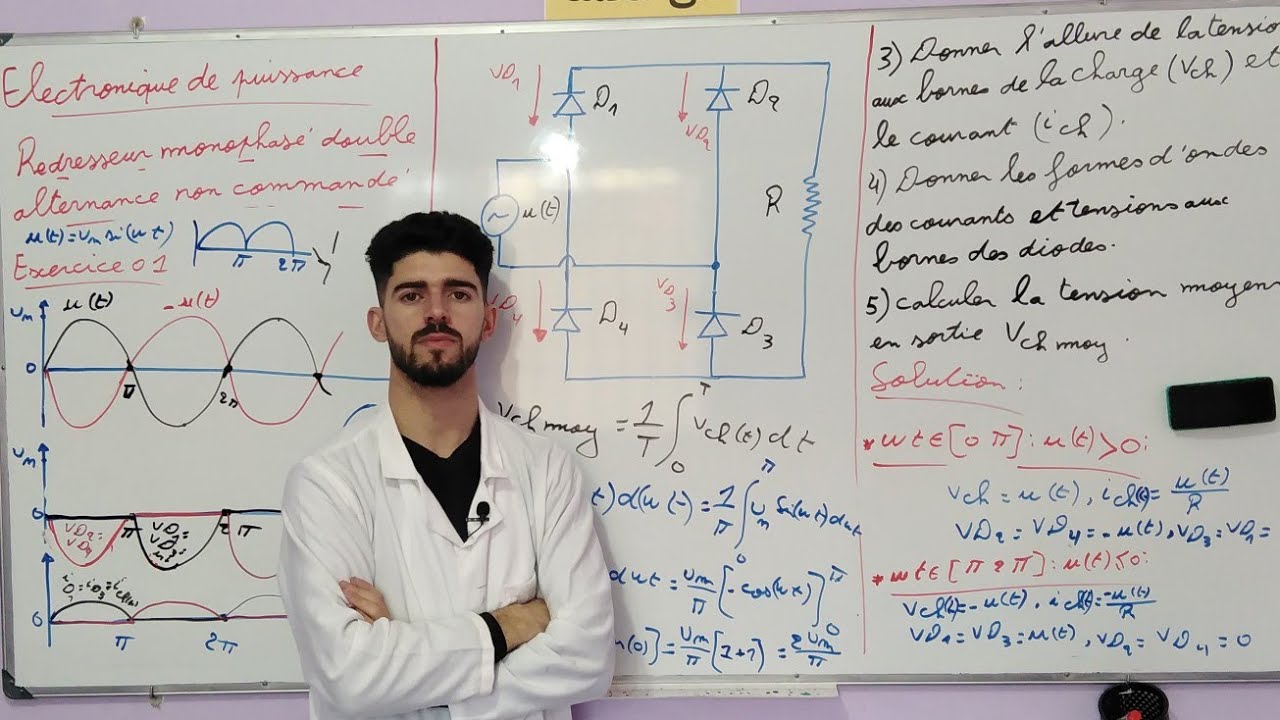 Electronique de puissance
Redresseur monophasé double
alternance non commandé
u(t)=Vm sin(wt)
π 2π
Exercice 01
u(t) -u(t)
Vm
0
π 2π
Vm
0
π 2π
VD2=
VD4
0
π 2π
VD1 D1 D2
VD2
u(t) R
D4 VD3 D3
Vch moy = 1/T ∫ Vch(t) dt
0 T
t) d(wt) = 1/π ∫ Vm Sin(wt) dwt
0 π
dwt = Vm/π [-cos(wx)]
0 π
(0)] = Vm/π [1+1] = 2Vm/π
3) Donner l'allure de la tension
aux bornes de la charge (Vch) et
le courant (ich).
4) Donner les formes d'ondes
des courants et tensions aux
bornes des diodes.
5) calculer la tension moyen
en sortie Vch moy.
Solution:
* wt ∈ [0 π]: u(t)>0:
Vch = u(t), ich(t) = u(t)/R
VD2 = VD4 = -u(t), VD3 = VD1 =
* wt ∈ [π 2π]: u(t)<0:
Vch(t) = -u(t), ich(t) = -u(t)/R
VD1 = VD3 = u(t), VD2 = VD4 = 0